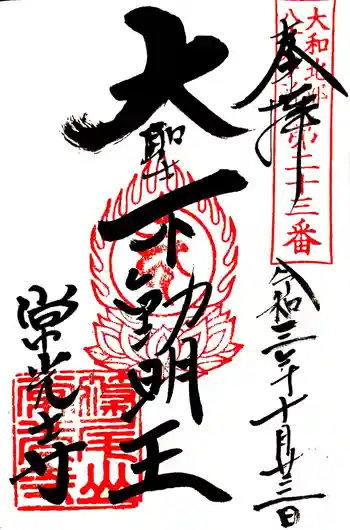 奉拝
大和北部
八十八ヶ所第二十三番
令和三年十月廿三日
大聖不動明王
常光寺